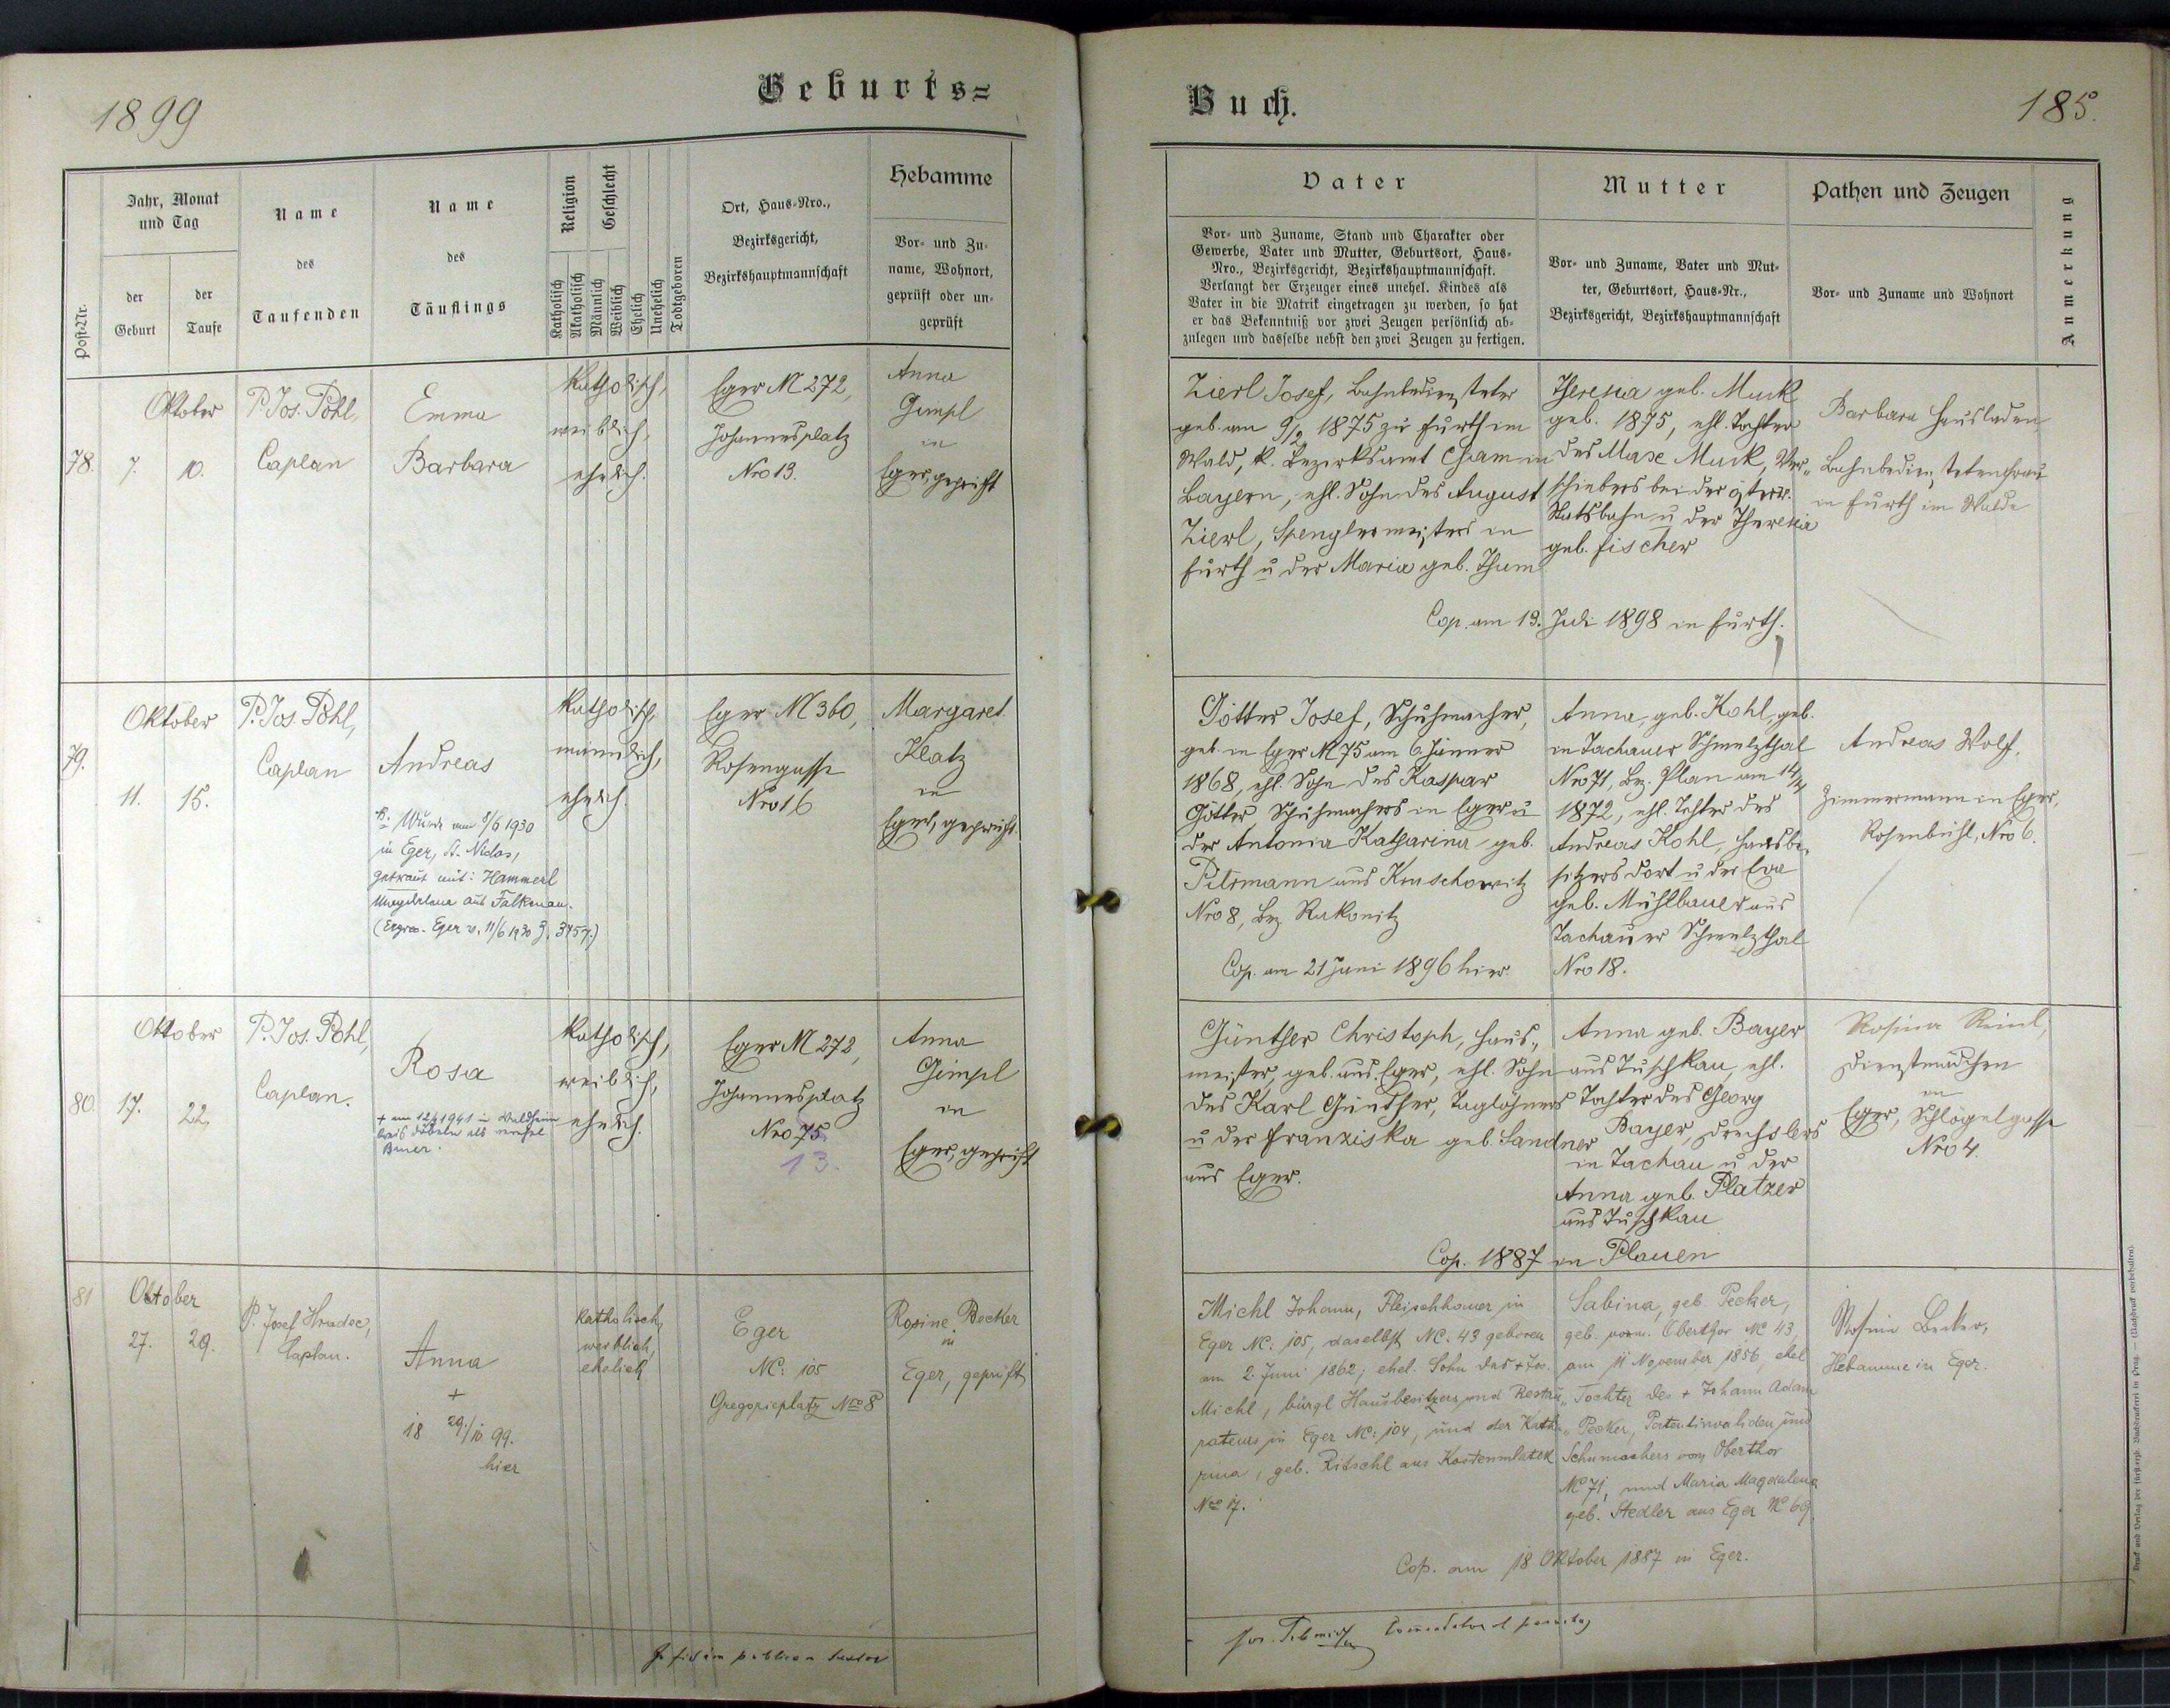 1899
Geburts=
Post-Nr.
Jahr, Monat
und Tag
der
Geburt
der
Taufe
Name
des
Taufenden
Name
des
Täuflings
Religion
Katholisch
Akatholisch
Geschlecht
Männlich
Weiblich
Ehelich
Unehelich
Todtgeboren
Ort, Haus-Nro.,
Bezirksgericht,
Bezirkshauptmannschaft
Hebamme
Vor- und Zu-
name, Wohnort,
geprüft oder un-
geprüft
78.
Oktober
7. 10.
P. Jos. Pohl,
Caplan
Emma
Barbara
katholisch,
weiblich,
ehelich.
Eger N 272,
Johannesplatz
Nro 13.
Anna
Gimpl
in
Eger, geprüft
79.
Oktober
11. 15.
P. Jos. Pohl,
Caplan
Andreas
Wurde am 8/6 1930
in Eger, St. Niclas,
getraut mit: Hammerl
Magdalena aus Falkenau.
Eger v. 11/6 1930 Z. 3457.)
katholisch,
männlich,
ehelich.
Eger N 360,
Rosengasse
Nro 16
Margaret.
Klatz
in
Eger, geprüft.
80.
Oktober
17. 22.
P. Jos. Pohl,
Caplan.
Rosa
1941 in Waldheim
Döbeln als
katholisch,
weiblich,
ehelich.
Eger N 272,
Johannesplatz
Nro 75
13.
Anna
Gimpl
in
Eger, geprüft
81
Oktober
27. 29.
P. Josef Hradec,
Caplan.
Anna
+
18 29./10 99.
hier
katholisch,
weiblich,
ehelich
Eger
NC: 105
Gregorieplatz Nro 8
Rosine Becker
in
Eger, geprüft
In fidem publicam
Buch.
185.
Vater
Vor- und Zuname, Stand und Charakter oder
Gewerbe, Vater und Mutter, Geburtsort, Haus-
Nro., Bezirksgericht, Bezirkshauptmannschaft.
Verlangt der Erzeuger eines unehel. Kindes als
Vater in die Matrik eingetragen zu werden, so hat
er das Bekenntniß vor zwei Zeugen persönlich ab-
zulegen und dasselbe nebst den zwei Zeugen zu fertigen.
Mutter
Vor- und Zuname, Vater und Mut-
ter, Geburtsort, Haus-Nr.,
Bezirksgericht, Bezirkshauptmannschaft
Pathen und Zeugen
Vor- und Zuname und Wohnort
Anmerkung
Zierl Josef, Bahnbediensteter
geb. am 9/2 1875 zu Furth im
Wald, k. Bezirksamt Cham in
Bayern, ehl. Sohn des August
Zierl, Spenglermeisters in
Furth u der Maria geb. Thum
Theresia geb. Muck
geb. 1875, ehl. Tochter
des Max Muck, Ver-
schiebers bei der österr.
Statsbahn u der Theresia
geb. Fischer
Cop. am 19. Juli 1898 in Furth.
Barbara Hausladen
Bahnbedienstetensfrau
in Furth im Walde
Götter Josef, Schuhmacher,
geb. in Eger N 75 am 6. Jänner
1868, ehl. Sohn des Kaspar
Götter Schuhmachers in Eger u
der Antonia Katharina geb.
Pitrmann aus Kruschowitz
Nro 8, Bez. Rakonitz
Cop. am 21 Juni 1896 hier.
Anna, geb. Kohl, geb.
in Tachauer Schmelzthal
Nro 71, Bez. Plan am 14/4
1872, ehl. Tochter des
Andreas Kohl, Hausbe-
sitzers dort u der Eva
geb. Mühlbauer aus
Tachauer Schmelzthal
Nro 18.
Andreas Wolf,
Zimmermann in Eger,
Rosenbühl, Nro 6.
Günther Christoph, Haus-
meister, geb. aus Eger, ehl. Sohn
des Karl Günther, Taglöhners
u der Franziska geb. Sandner
aus Eger.
Anna geb. Bayer
aus Tuschkau, ehl.
Tochter des Georg
Bayer, Drechslers
in Tachau u der
Anna geb. Platzer
aus Tuschkau
Cop. 1887 in Plauen
Rosina
Dienstmädchen
in
Eger, Schlögelgasse
Nro 4.
Michl Johann, Fleischhauer in
Eger NC: 105, daselbst NC: 43 geboren
am 2. Juni 1862; ehel. Sohn des + Jos.
Michl, bürgl Hausbesitzers und Restau-
rateurs in Eger NC: 104, und der Katha-
rina, geb. Ritschl aus Kostenmlatek
Nro 17.
Sabina, geb. Pecker,
geb. vorm. Oberthor NC 43,
am 11 November 1856, ehel
Tochter des + Johann Adam
Pecker, Patentinvaliden und
Schumachers vom Oberthor
NC 71, und Maria Magdalena
geb. Stedler aus Eger NC 69.
Cop. am 18 Oktober 1887 in Eger.
Rosina Becker,
Hebamme in Eger.
Druck und Verlag der fürst-erzb. Buchdruckerei in Prag. — (Nachdruck vorbehalten).